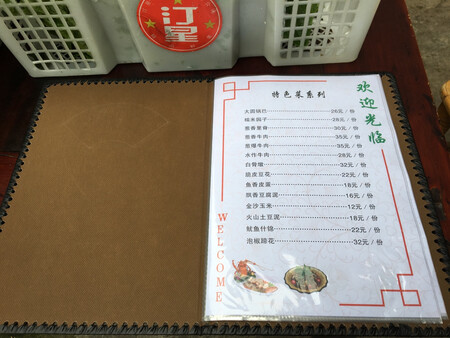 订星
特色菜系列
欢迎光临
大圆锅巴 26元/份
糯米圆子 28元/份
葱香里脊 30元/份
葱香牛肉 35元/份
葱爆牛肉 35元/份
水作牛肉 28元/份
白骨墩 32元/份
脆皮豆花 22元/份
鱼香皮蛋 18元/份
飘香豆腐泥 16元/份
金沙玉米 12元/份
火山土豆泥 18元/份
鱿鱼什锦 22元/份
泡椒蹄花 32元/份
WELCOME